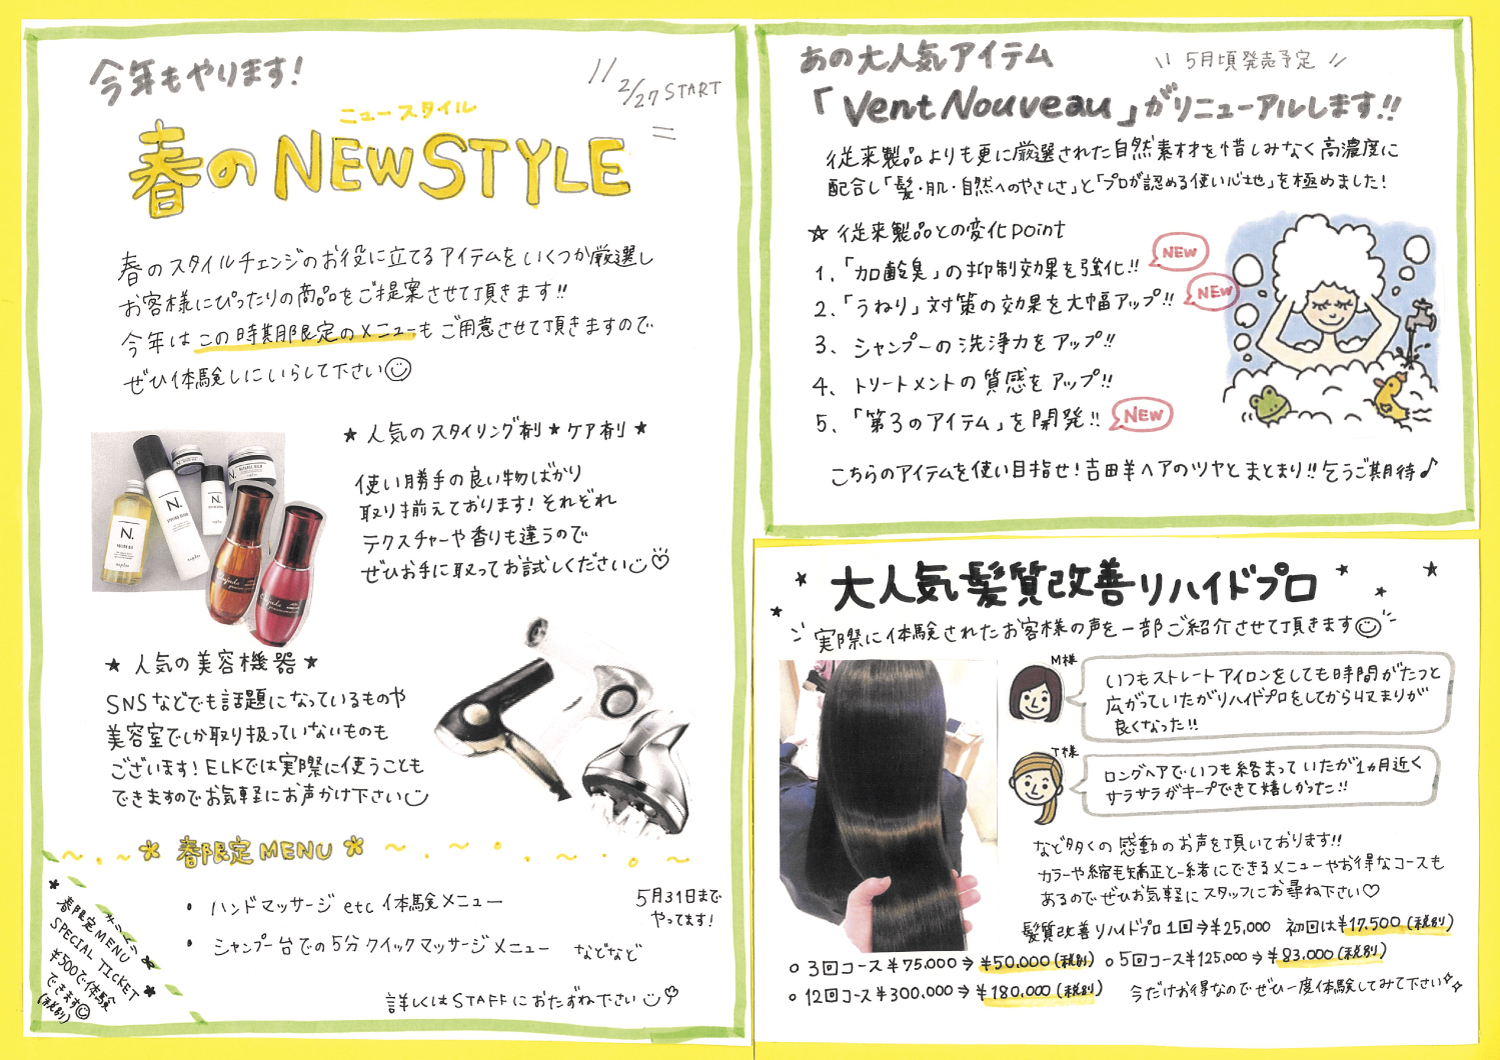 今年もやります!
2/27 START
ニュースタイル
春のNEW STYLE
春のスタイルチェンジのお役に立てるアイテムをいくつか厳選し
お客様にぴったりの商品をご提案させて頂きます!!
今年はこの時期限定のメニューもご用意させて頂きますので
ぜひ体験しにいらして下さい
★人気のスタイリング剤★ケア剤★
使い勝手の良い物ばかり
取り揃えております!それぞれ
テクスチャーや香りも違うので
ぜひお手に取ってお試しください
N.
N.
N.
★人気の美容機器★
SNSなどでも話題になっているものや
美容室でしか取り扱っていないものも
ございます!ELKでは実際に使うことも
できますのでお気軽にお声かけ下さい
春限定MENU
・ハンドマッサージetc体験メニュー
・シャンプー台での5分クイックマッサージメニュー などなど
5月31日まで
やってます!
春限定MENU
SPECIAL TICKET
¥500で体験
できます
(税別)
詳しくはSTAFFにおたずね下さい
あの大人気アイテム
5月頃発売予定
「Vent Nouveau」がリニューアルします!!
従来製品よりも更に厳選された自然素材を惜しみなく高濃度に
配合し「髪・肌・自然へのやさしさ」と「プロが認める使い心地」を極めました!
☆従来製品との変化point
1.「加齢臭」の抑制効果を強化!! NEW
2.「うねり」対策の効果を大幅アップ!! NEW
3. シャンプーの洗浄力をアップ!!
4. トリートメントの質感をアップ!!
5.「第3のアイテム」を開発!! NEW
こちらのアイテムを使い目指せ!吉田羊ヘアのツヤとまとまり!!乞うご期待♪
大人気髪質改善リハイドプロ
実際に体験されたお客様の声を一部ご紹介させて頂きます
M様
いつもストレートアイロンをしても時間がたつと
広がっていたがリハイドプロをしてから収まりが
良くなった!!
T様
ロングヘアでいつも絡まっていたが1ヵ月近く
サラサラがキープできて嬉しかった!!
など多くの感動のお声を頂いております!!
カラーや縮毛矯正と一緒にできるメニューやお得なコースも
あるのでぜひお気軽にスタッフにお尋ね下さい♡
髪質改善リハイドプロ1回→¥25,000 初回は¥17,500(税別)
○3回コース¥75,000→¥50,000(税別) ○5回コース¥125,000→¥83,000(税別)
○12回コース¥300,000→¥180,000(税別) 今だけお得なのでぜひ一度体験してみて下さい